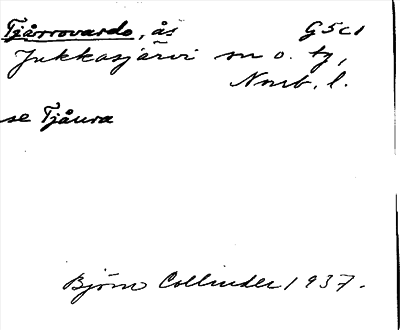 Tjårrovardo, ås G5c1
Jukkasjärvi sn o. tg,
Norrb. l.
se Tjåura
Björn Collinder 1937.